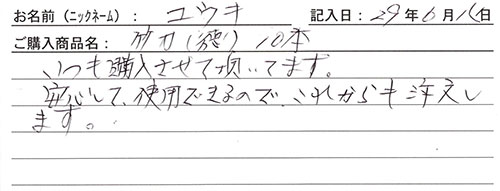 お名前（ニックネーム）： ユウキ 記入日：29年6月16日
ご購入商品名： 竹刀（ ）10本
いつも購入させて頂いてます。
安心して、使用できるので、これからも注文し
ます。